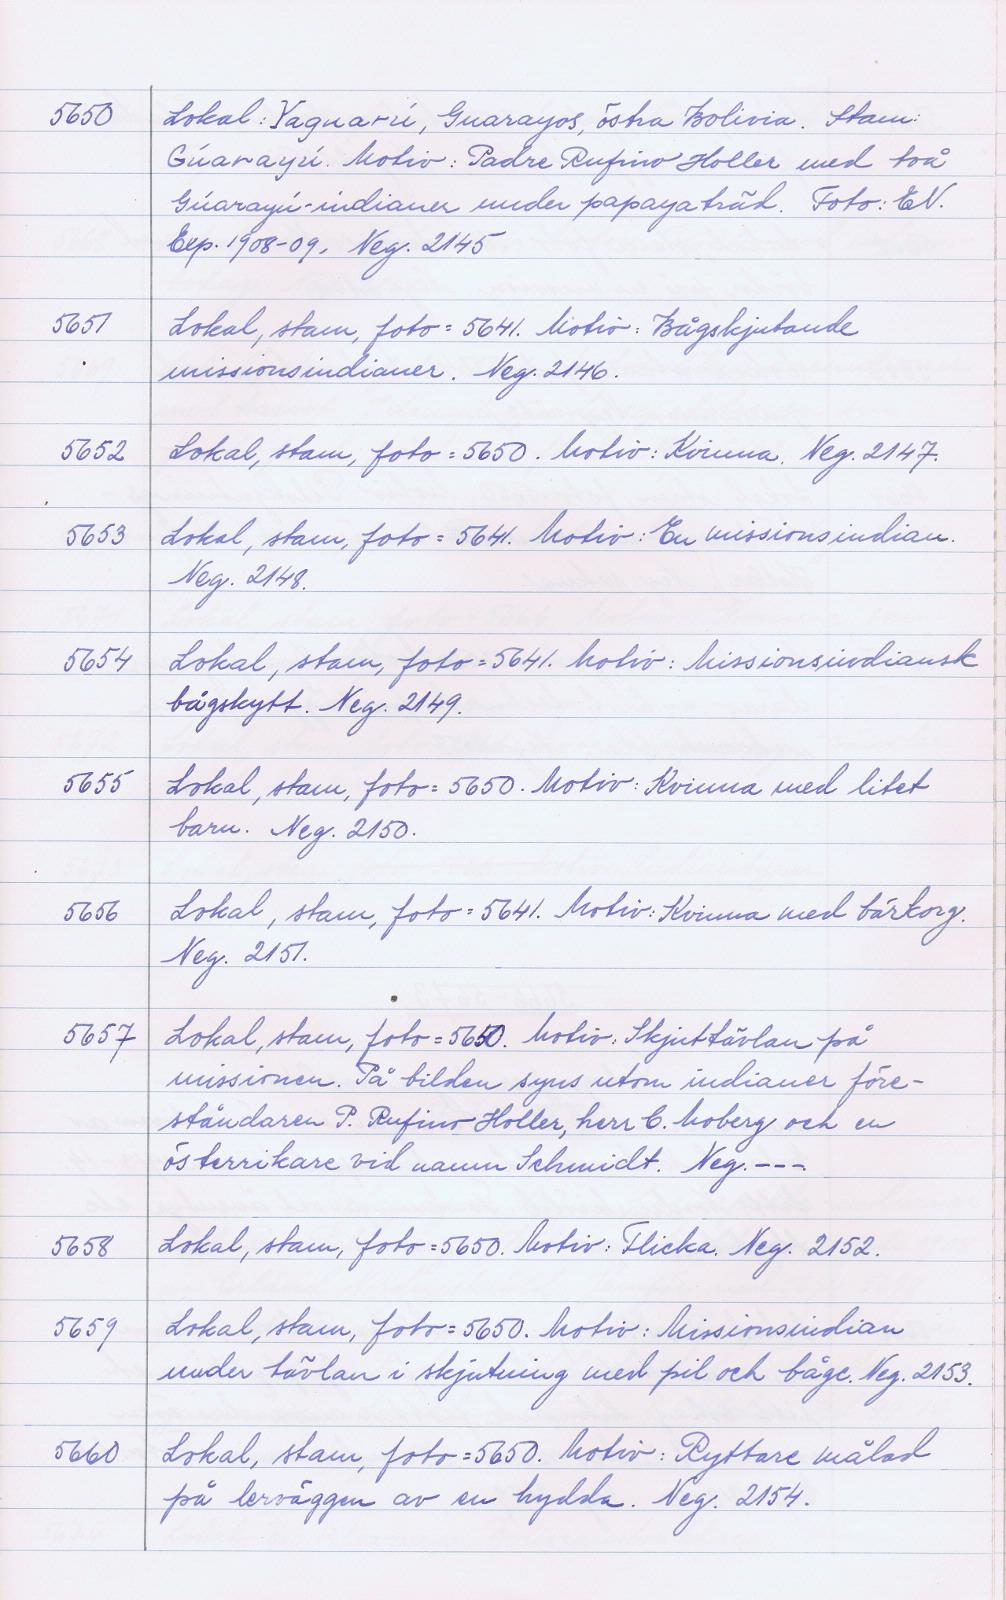 5650 Lokal: Yaguarú, Guarayos, östra Bolivia. Stam:
Gúarayú. Motiv: Padre Rufino Holler med två
Gúarayú-indianer under papayaträd. Foto: E.N.
Exp. 1908-09. Neg. 2145
5651 Lokal, stam, foto = 5641. Motiv: Bågskjutande
missionsindianer. Neg. 2146.
5652 Lokal, stam, foto = 5650. Motiv: Kvinna. Neg. 2147.
5653 Lokal, stam, foto = 5641. Motiv: En missionsindian.
Neg. 2148.
5654 Lokal, stam, foto = 5641. Motiv: Missionsindiansk
bågskytt. Neg. 2149.
5655 Lokal, stam, foto = 5650. Motiv: Kvinna med litet
barn. Neg. 2150.
5656 Lokal, stam, foto = 5641. Motiv: Kvinna med bärkorg.
Neg. 2151.
5657 Lokal, stam, foto = 5650. Motiv: Skjuttävlan på
missionen. På bilden syns utom indianer före-
ståndaren P. Rufino Holler, herr C. Moberg och en
österrikare vid namn Schmidt. Neg. ---.
5658 Lokal, stam, foto = 5650. Motiv: Flicka. Neg. 2152.
5659 Lokal, stam, foto = 5650. Motiv: Missionsindian
under tävlan i skjutning med pil och båge. Neg. 2153.
5660 Lokal, stam, foto = 5650. Motiv: Ryttare målad
på lerväggen av en hydda. Neg. 2154.